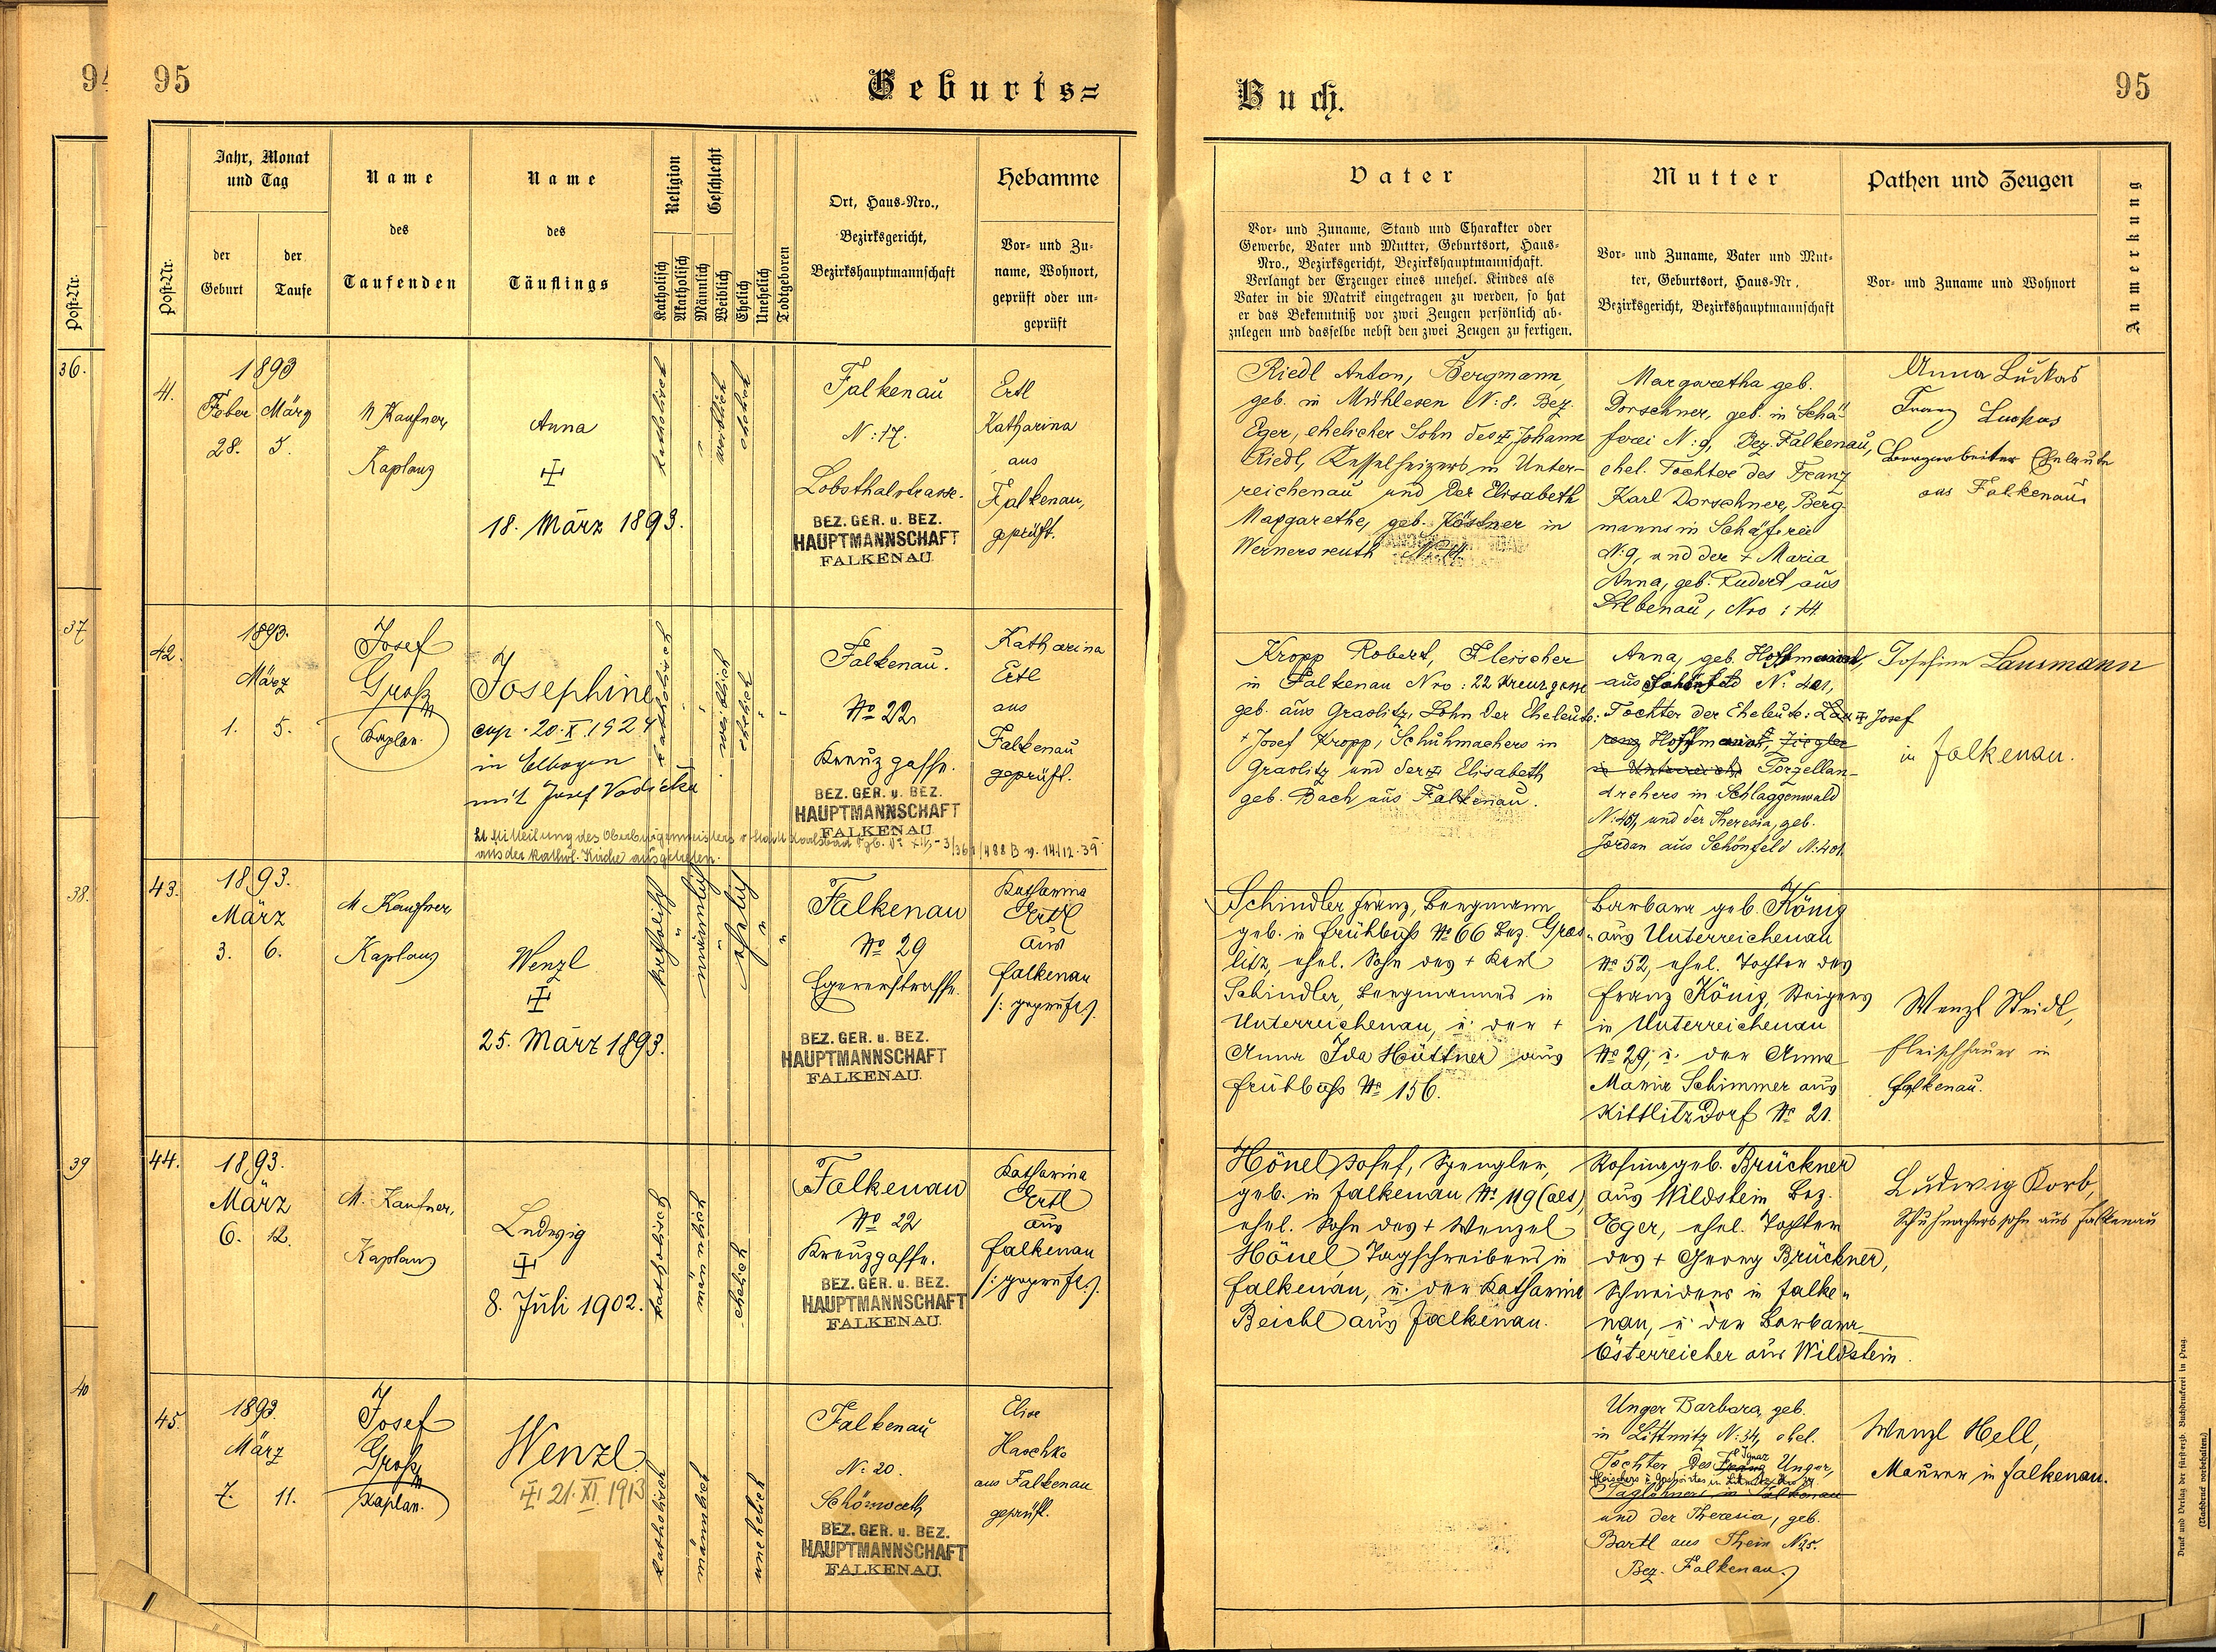 94
95
Geburts=
Buch.
95
Post-Nr.
36.
37
38.
39
40
Post-Nr.
Jahr, Monat
und Tag
der
Geburt
der
Taufe
Name
des
Taufenden
Name
des
Täuflings
Religion
Katholisch
Akatholisch
Geschlecht
Männlich
Weiblich
Ehelich
Unehelich
Todtgeboren
Ort, Haus-Nro.,
Bezirksgericht,
Bezirkshauptmannschaft
Hebamme
Vor- und Zu-
name, Wohnort,
geprüft oder un-
geprüft
Vater
Vor- und Zuname, Stand und Charakter oder
Gewerbe, Vater und Mutter, Geburtsort, Haus-
Nro., Bezirksgericht, Bezirkshauptmannschaft.
Verlangt der Erzeuger eines unehel. Kindes als
Vater in die Matrik eingetragen zu werden, so hat
er das Bekenntniß vor zwei Zeugen persönlich ab-
zulegen und dasselbe nebst den zwei Zeugen zu fertigen.
Mutter
Vor- und Zuname, Vater und Mut-
ter, Geburtsort, Haus-Nr.,
Bezirksgericht, Bezirkshauptmannschaft
Pathen und Zeugen
Vor- und Zuname und Wohnort
Anmerkung
41.
1893
Feber März
28. 5.
M Kaufner,
Kaplan
Anna
18. März 1893.
katholisch
weiblich
ehelich
Falkenau
N: 17.
Lobsthalstrasse.
BEZ. GER. u. BEZ.
HAUPTMANNSCHAFT
FALKENAU.
Ertl
Katharina
aus
Falkenau,
geprüft.
Riedl Anton, Bergmann,
geb. in Mühlesen N: 8. Bez.
Eger, ehelicher Sohn des + Johann
Riedl, Kesselheizers in Unter-
reichenau und der Elisabeth
Margarethe, geb. Köstner in
Wernersreuth N: 14.
Margaretha geb.
Dorschner, geb. in Schä-
ferei N: 9, Bez. Falkenau,
ehel. Tochter des Franz
Karl Dorschner, Berg-
manns in Schäferei
N: 9, und der + Maria
Anna, geb. Rudert aus
Silbenau, Nro: 14
Anna Lukas
Franz Lukas
Bergarbeiter Eheleute
aus Falkenau
42.
1893.
März
1. 5.
Josef
Groß
Kaplan.
Josephine
cop. 20. X. 1924
in Elbogen
mit Josef Vodička
Lt. Mitteilung des Oberbürgermeisters v. Stadt Karlsbad
aus der kathol. Kirche ausgetreten.
katholisch
weiblich
ehelich
Falkenau.
No 22
Kreuzgasse.
BEZ. GER. u. BEZ.
HAUPTMANNSCHAFT
FALKENAU.
Katharina
Ertl
aus
Falkenau
geprüft.
Kropp Robert, Fleischer
in Falkenau Nro: 22 Kreuzgasse
geb. aus Graslitz, Sohn der Eheleute:
+ Josef Kropp, Schuhmachers in
Graslitz und der + Elisabeth
geb. Bach aus Falkenau.
Anna, geb. Hoffmann,
aus Schönfeld N: 401,
Tochter der Eheleute: Josef
Hoffmann, Ziegler
Porzellan-
drehers in Schlaggenwald
N: 451, und der Theresia, geb.
Jordan aus Schönfeld N: 401.
Josefine Lausmann
in Falkenau.
43.
1893.
März
3. 6.
M Kaufner,
Kaplan
Wenzl
25. März 1893.
katholisch
männlich
ehelich
Falkenau
No 29
Egererstrasse.
BEZ. GER. u. BEZ.
HAUPTMANNSCHAFT
FALKENAU.
Katharina
Ertl
aus
Falkenau
/: geprüft :/
Schindler Franz, Bergmann
geb. in Frühbuß No 66 Bez. Gras-
litz, ehel. Sohn des + Karl
Schindler, Bergmannes in
Unterreichenau, u. der +
Anna Ida Hüttner aus
Frühbuß No 156.
Barbara geb. König
aus Unterreichenau
No 52, ehel. Tochter des
Franz König, Steigers
in Unterreichenau
No 29, u. der Anna
Maria Schimmer aus
Kittlitzdorf No 21.
Wenzl Steidl,
Fleischhauer in
Falkenau.
44.
1893.
März
6. 12.
M. Kaufner,
Kaplan
Ludwig
8. Juli 1902.
katholisch
männlich
ehelich
Falkenau
No 22
Kreuzgasse.
BEZ. GER. u. BEZ.
HAUPTMANNSCHAFT
FALKENAU.
Katharina
Ertl
aus
Falkenau
/: geprüft :/
Hönel Josef, Spengler,
geb. in Falkenau No 119 (alt),
ehel. Sohn des + Wenzel
Hönel Tagschreibers in
Falkenau, u. der Katharina
Beichl aus Falkenau.
Rosina geb. Brückner
aus Wildstein Bez.
Eger, ehel. Tochter
des + Georg Brückner,
Schneiders in Falke-
nau, u. der Barbara
Österreicher aus Wildstein.
Ludwig Korb,
Schuhmacherssohn aus Falkenau
45.
1893.
März
7. 11.
Josef
Groß
Kaplan.
Wenzl
21. XI. 1913
katholisch
männlich
unehelich
Falkenau
N: 20.
Schönwerth
BEZ. GER. u. BEZ.
HAUPTMANNSCHAFT
FALKENAU.
Elise
Haschke
aus Falkenau
geprüft.
Unger Barbara, geb.
in Littmitz N: 34, ehel.
Tochter des Franz Ignaz Unger,
Taglöhners in Falkenau
und der Theresia, geb.
Bartl aus Thein N: 25.
Bez. Falkenau.
Wenzl Hell,
Maurer in Falkenau.
Druck und Verlag der fürsterzb. Buchdruckerei in Prag.
(Nachdruck vorbehalten.)